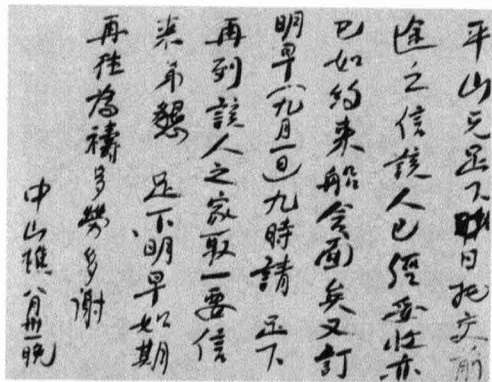 平山兄足下昨日托交前
途之信該人已經妥收亦
已如約来船會面矣又訂
明早(九月一日)九時請 足下
再到該人之家取一要信
来弟懇 足下明早如期
再往為禱多勞多謝
中山樵 八月卅一晚